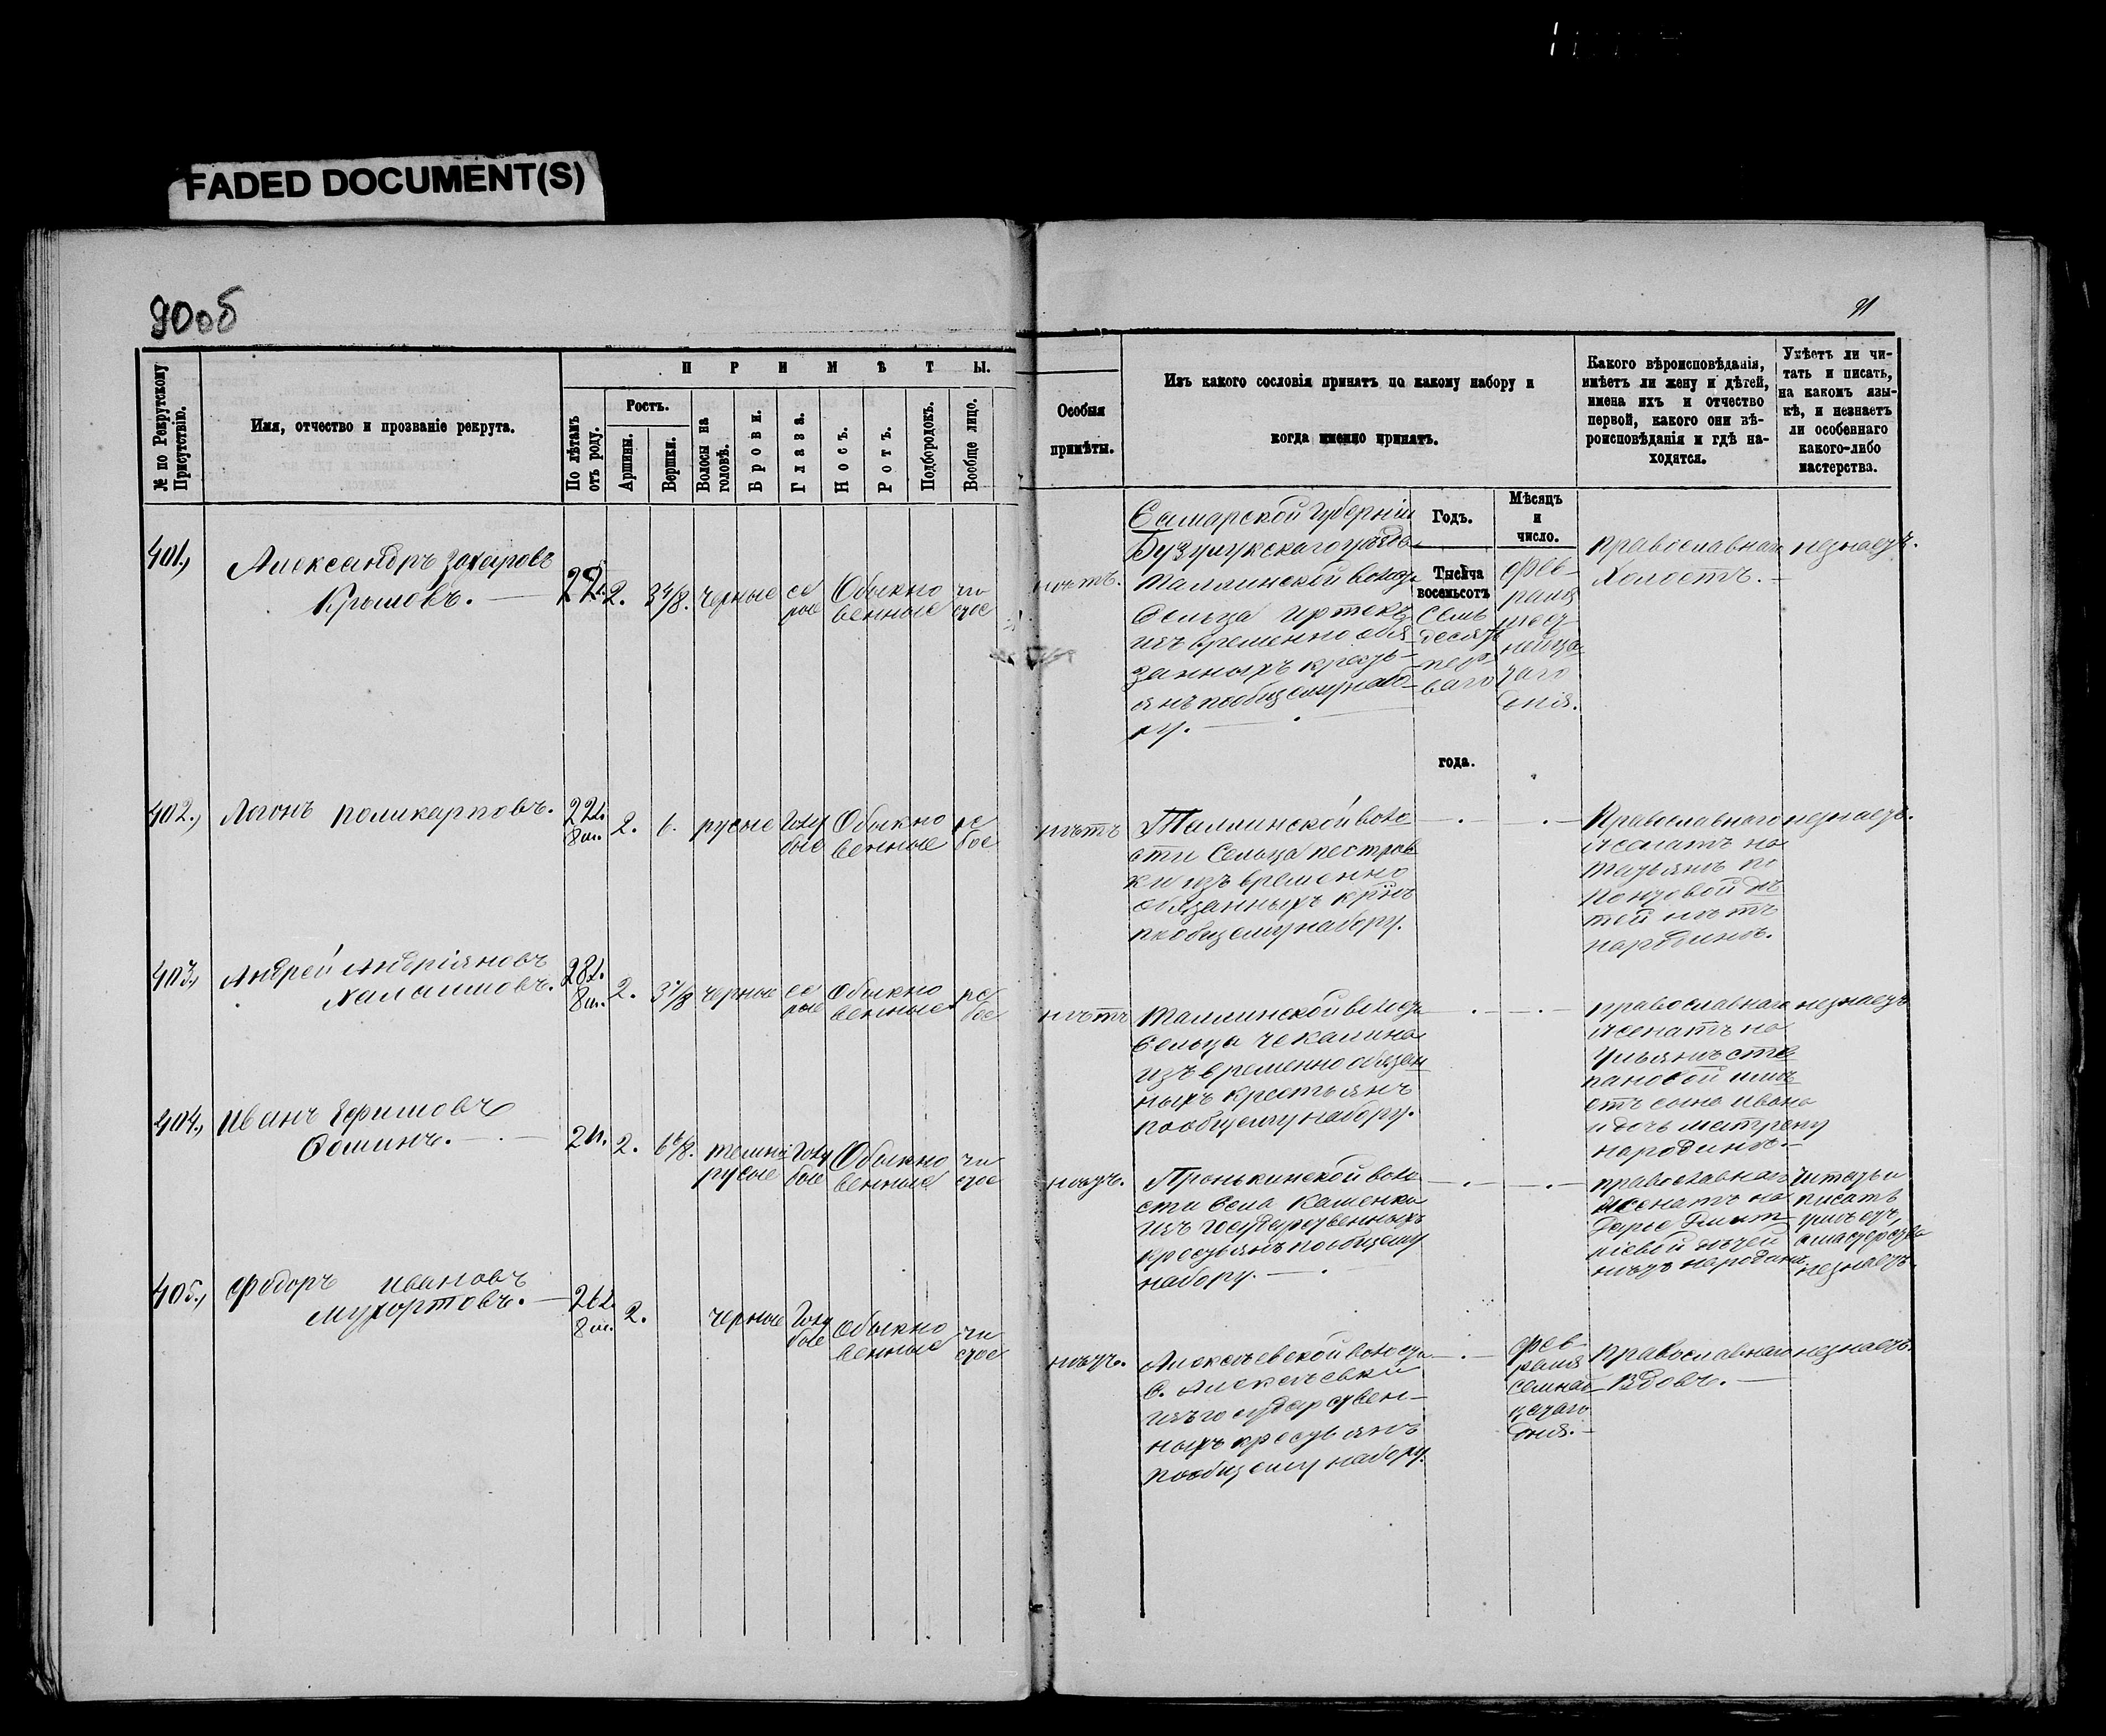 FADED DOCUMENT(S)
90об
91
№ по Рекрутскому Присутствію.
Имя, отчество и прозваніе рекрута.
ПРИМѢТЫ.
По лѣтамъ отъ роду.
Ростъ.
Аршины.
Вершки.
Волосы на головѣ.
Брови.
Глаза.
Носъ.
Ротъ.
Подбородокъ.
Вообще лицо.
Особыя
примѣты.
Изъ какого сословія принятъ по какому набору и
когда именно принятъ.
Какого вѣроисповѣданія,
имѣетъ ли жену и дѣтей,
имена ихъ и отчество
первой, какого они вѣ-
роисповѣданія и гдѣ на-
ходятся.
Умѣетъ ли чи-
тать и писать,
на какомъ язы-
кѣ, и незнаетъ
ли особеннаго
какого-либо
мастерства.
Годъ.
Мѣсяцъ
и
число.
401.,
Александръ Захаровъ
Крымовъ.
2.
3 4/8.
черные
се
рые
Обыкно
венные
чи
стое
нѣтъ.
Самарской Губерніи
Бузулукскаго уѣзда
Сельца Иртекъ
изъ временно обя
занныхъ кресть-
янъ по общему набо-
ру.
Тысяча
восемьсотъ
семь
десятъ
пер-
ваго
года.
фев-
раля
дня.
Православнаго
Холостъ.
незнаетъ.
402.,
Логонъ Поликарповъ.
22л.
8м.
2.
6.
русые
голу
бые
Обыкно
венные
ря
бое
нѣтъ
Таллинской воло
сти Сельца Пестров
ки изъ временно
обязанныхъ крнъ
по общему набору.
Православнаго
женатъ на
Татьянѣ
дѣ
тей нѣтъ
народинѣ.
незнаетъ.
403.,
Андрей Андріяновъ
28л.
8м.
2.
черные
се
рые
Обыкно
венные
ря
бое
нѣтъ
Таллинской волости
Сельца Чекалина
изъ временно обязан
ныхъ крестьянъ
по общему набору.
Православнаго
женатъ на
Ульянѣ Сте
пановой имѣ
етъ сына Ивана
и дочь Матрену
народинѣ.
незнаетъ
404.,
Иванъ Ефимовъ
2.
6 6/8.
темно
русые
голу
бые
Обыкно
венные
чи
стое
нѣтъ.
Пронькинской воло
сти Села Каменки
изъ государственныхъ
крестьянъ по общему
набору.
Православнаго
женатъ на
Дарье Дмит
ріевой дѣтей
нѣтъ народинѣ
Читать и
писать
умѣетъ,
а мастерства
незнаетъ.
405.,
Федоръ Ивановъ
Мухортовъ.
26л.
8м.
2.
черные
голу
бые
Обыкно
венные
чи
стое
нѣтъ.
Алексѣевской волости
С. Алексѣевки
изъ государствен-
ныхъ крестьянъ
по общему набору.
фев-
раля
семнад
цатаго
дня.
Православнаго
Вдовъ.
незнаетъ.